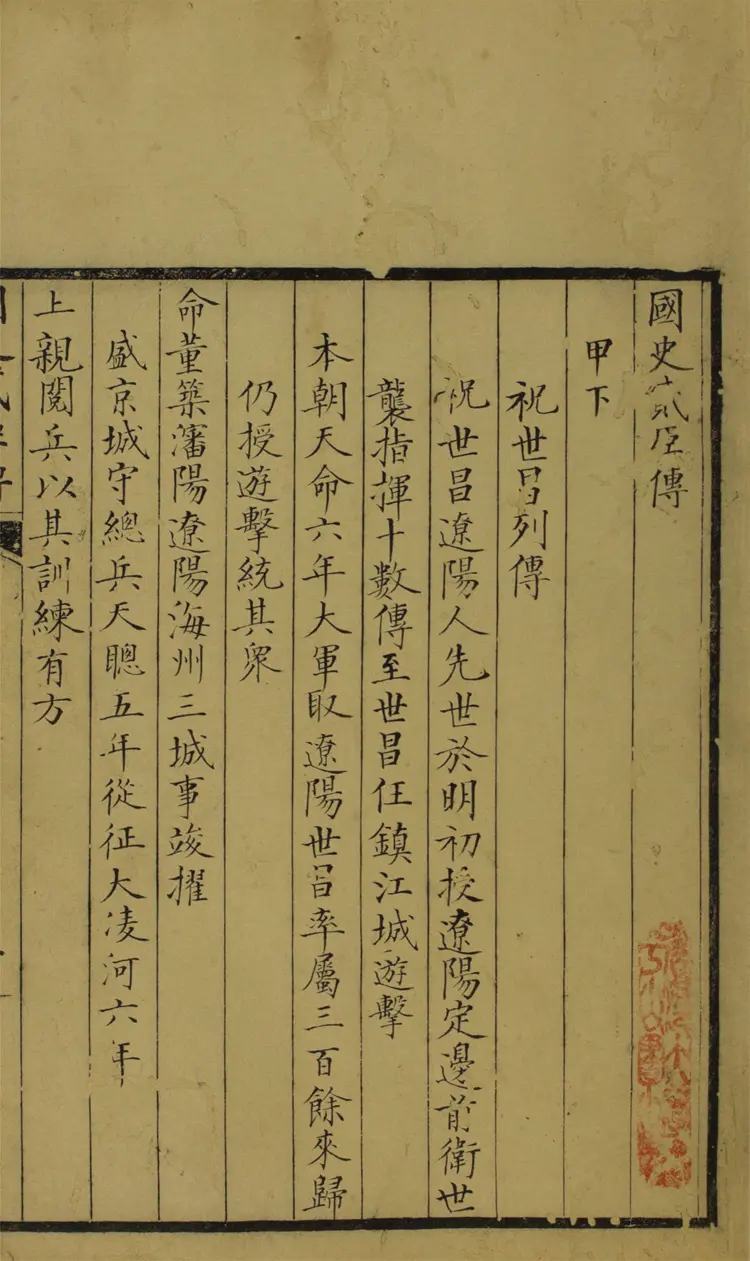 國史貳臣傳
甲下
祝世昌列傳
祝世昌遼陽人先世於明初授遼陽定邊前衛世
襲指揮十數傳至世昌任鎮江城遊擊
本朝天命六年大軍取遼陽世昌率屬三百餘來歸
仍授遊擊統其衆
命董築瀋陽遼陽海州三城事竣擢
盛京城守總兵天聰五年從征大凌河六年
上親閱兵以其訓練有方